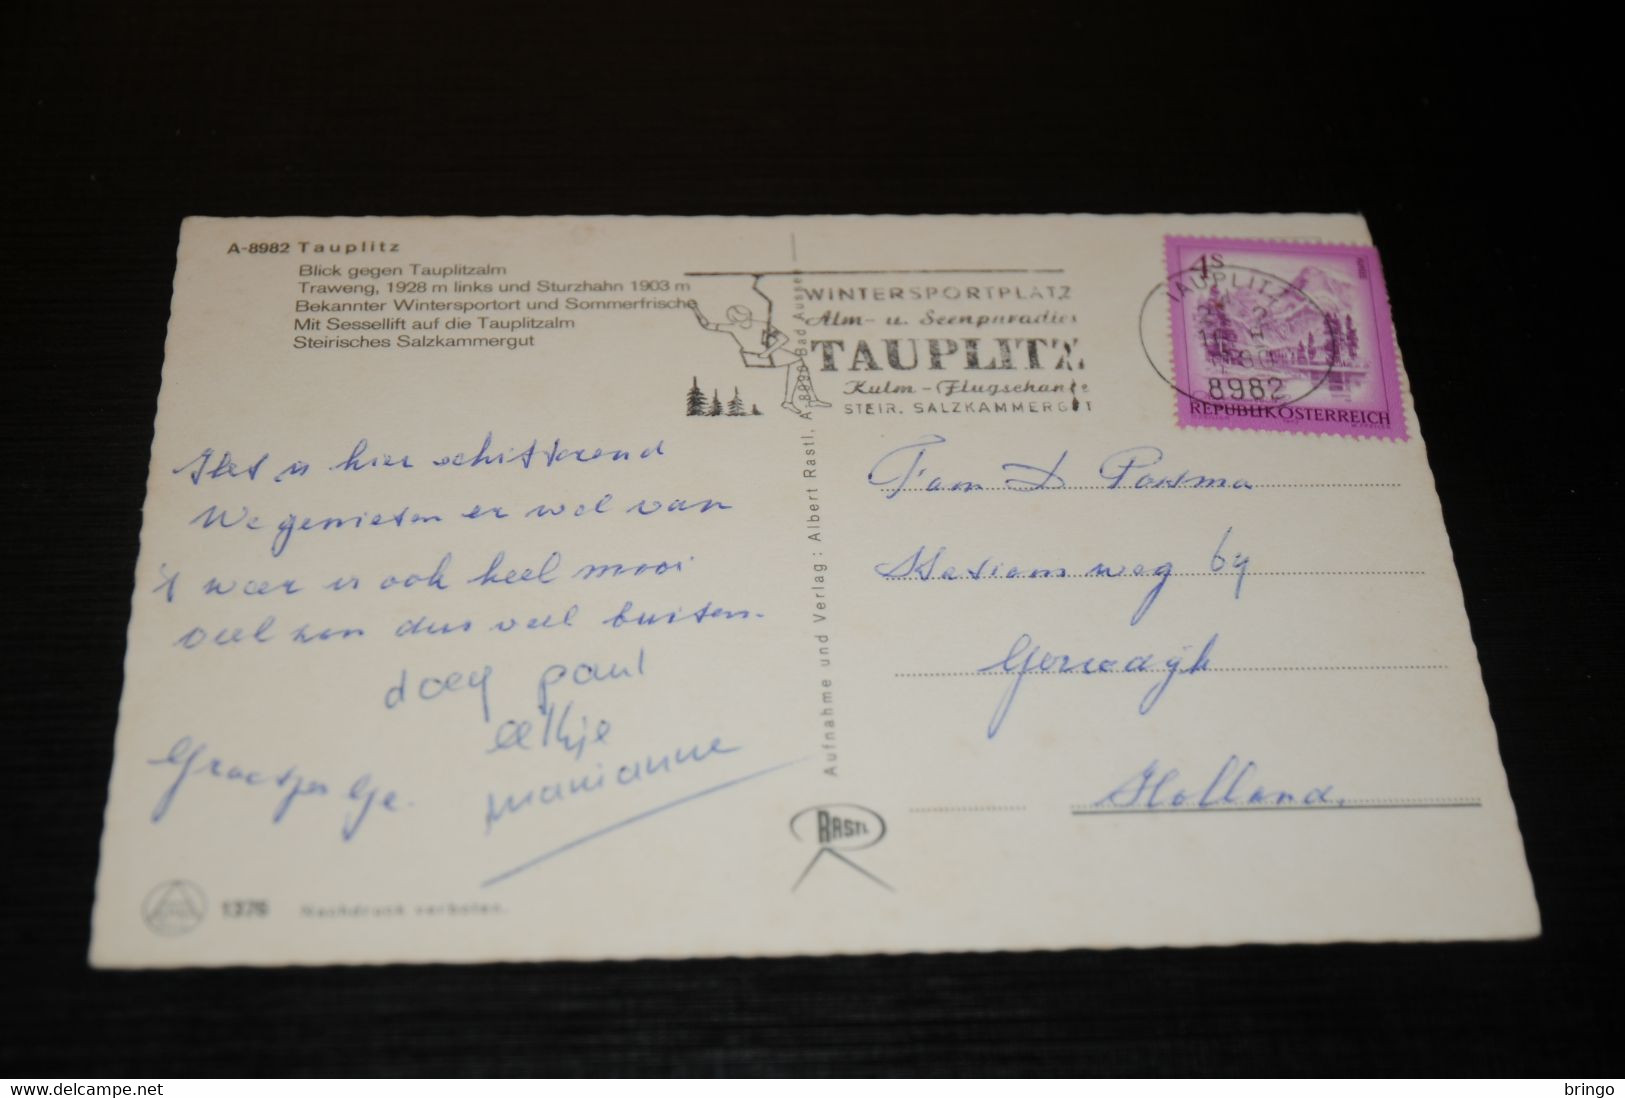 A-8982 Tauplitz
Blick gegen Tauplitzalm
Traweng, 1928 m links und Sturzhahn 1903 m
Bekannter Wintersportort und Sommerfrische
Mit Sessellift auf die Tauplitzalm
Steirisches Salzkammergut
WINTERSPORTPLATZ
Alm- u. Seenparadies
TAUPLITZ
Kulm-Flugschanze
STEIR. SALZKAMMERGUT
TAUPLITZ
8982
4 S
REPUBLIK ÖSTERREICH
Het is hier schitterend
We genieten er wel van
't weer is ook heel mooi
veel zon dus veel buiten.
doeg paul
elkje
marianne
Groetjes Ge.
Fam D Postma
Stationsweg 64
Gorredijk
Holland.
Aufnahme und Verlag: Albert Rastl, A-8990 Bad Aussee
RASTL
1376 Nachdruck verboten.
bringo
www.delcampe.net